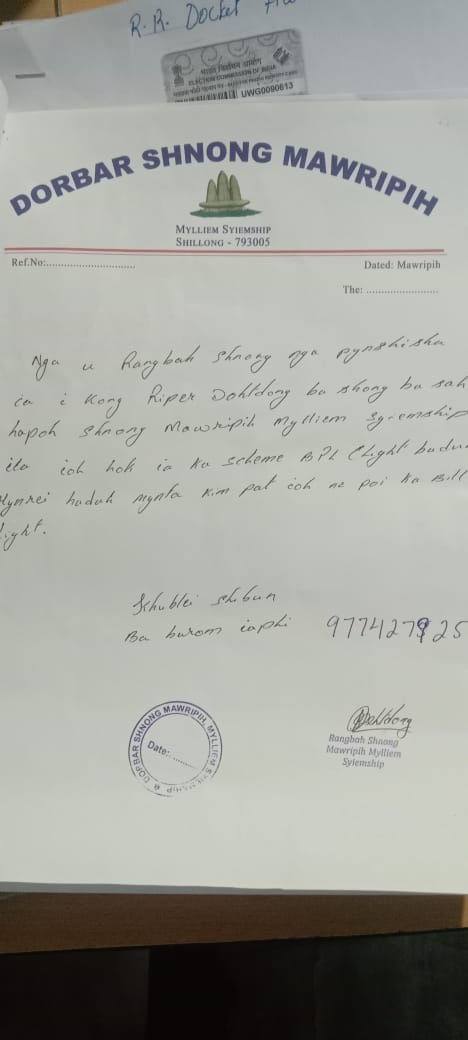 R.R. Docket
भारत निर्वाचन आयोग
ELECTION COMMISSION OF INDIA
UWG0090613
DORBAR SHNONG MAWRIPIH
MYLLIEM SYIEMSHIP
SHILLONG - 793005
Ref.No:..............................
Dated: Mawripih
The: ........................
Nga u Rangbah Shnong nga pynshisha
ia i Kong Riper Dohtdong ba shong ba sah
hapoh Shnong Mawripih Mylliem Syiemship
ila ioh hok ia ka scheme BPL (Light
Hynrei haduh mynta kim pat ioh ne poi ka Bill
light.
Khublei shibun
Ba burom iaphi
DORBAR SHNONG MAWRIPIH, MYLLIEM SYIEMSHIP
Date: ........
Dohtdong
Rangbah Shnong
Mawripih Mylliem
Syiemship